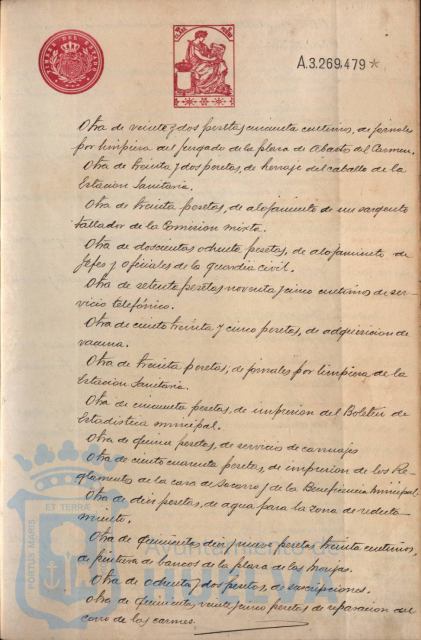 TIMBRE DEL ESTADO
A.3.269.479*
Otra de veinte y dos pesetas cincuenta centimos, de jornales
por limpieza del juzgado de la plaza de Abastos del Carmen.
Otra de treinta y dos pesetas, de herraje del caballo de la
Estacion Sanitaria.
Otra de treinta pesetas, de alojamiento de un sargento
tallador de la Comision mixta.
Otra de doscientas ochenta pesetas, de alojamiento de
Jefes y oficiales de la guardia civil.
Otra de setenta pesetas noventa y cinco centimos de ser-
vicio telefónico.
Otra de ciento treinta y cinco pesetas, de adquisicion de
vacuna.
Otra de treinta pesetas, de jornales por limpieza de la
Estacion Sanitaria.
Otra de cincuenta pesetas, de impresion del Boletin de
Estadistica municipal.
Otra de quince pesetas, de servicio de carruajes
Otra de ciento cuarenta pesetas, de impresion de los Re-
glamentos de la casa de Socorro y de la Beneficencia Municipal.
Otra de diez pesetas, de agua para la zona de recluta-
miento.
Otra de quinientas diez y nueve pesetas treinta centimos,
de pintura de bancos de la plaza de las Monjas.
Otra de ochenta y dos pesetas, de suscripciones.
Otra de quinientas veinte y cinco pesetas de reparacion del
carro de las carnes.
PORTUS MARIS
ET TERRÆ
Ayuntamiento de
HUELVA